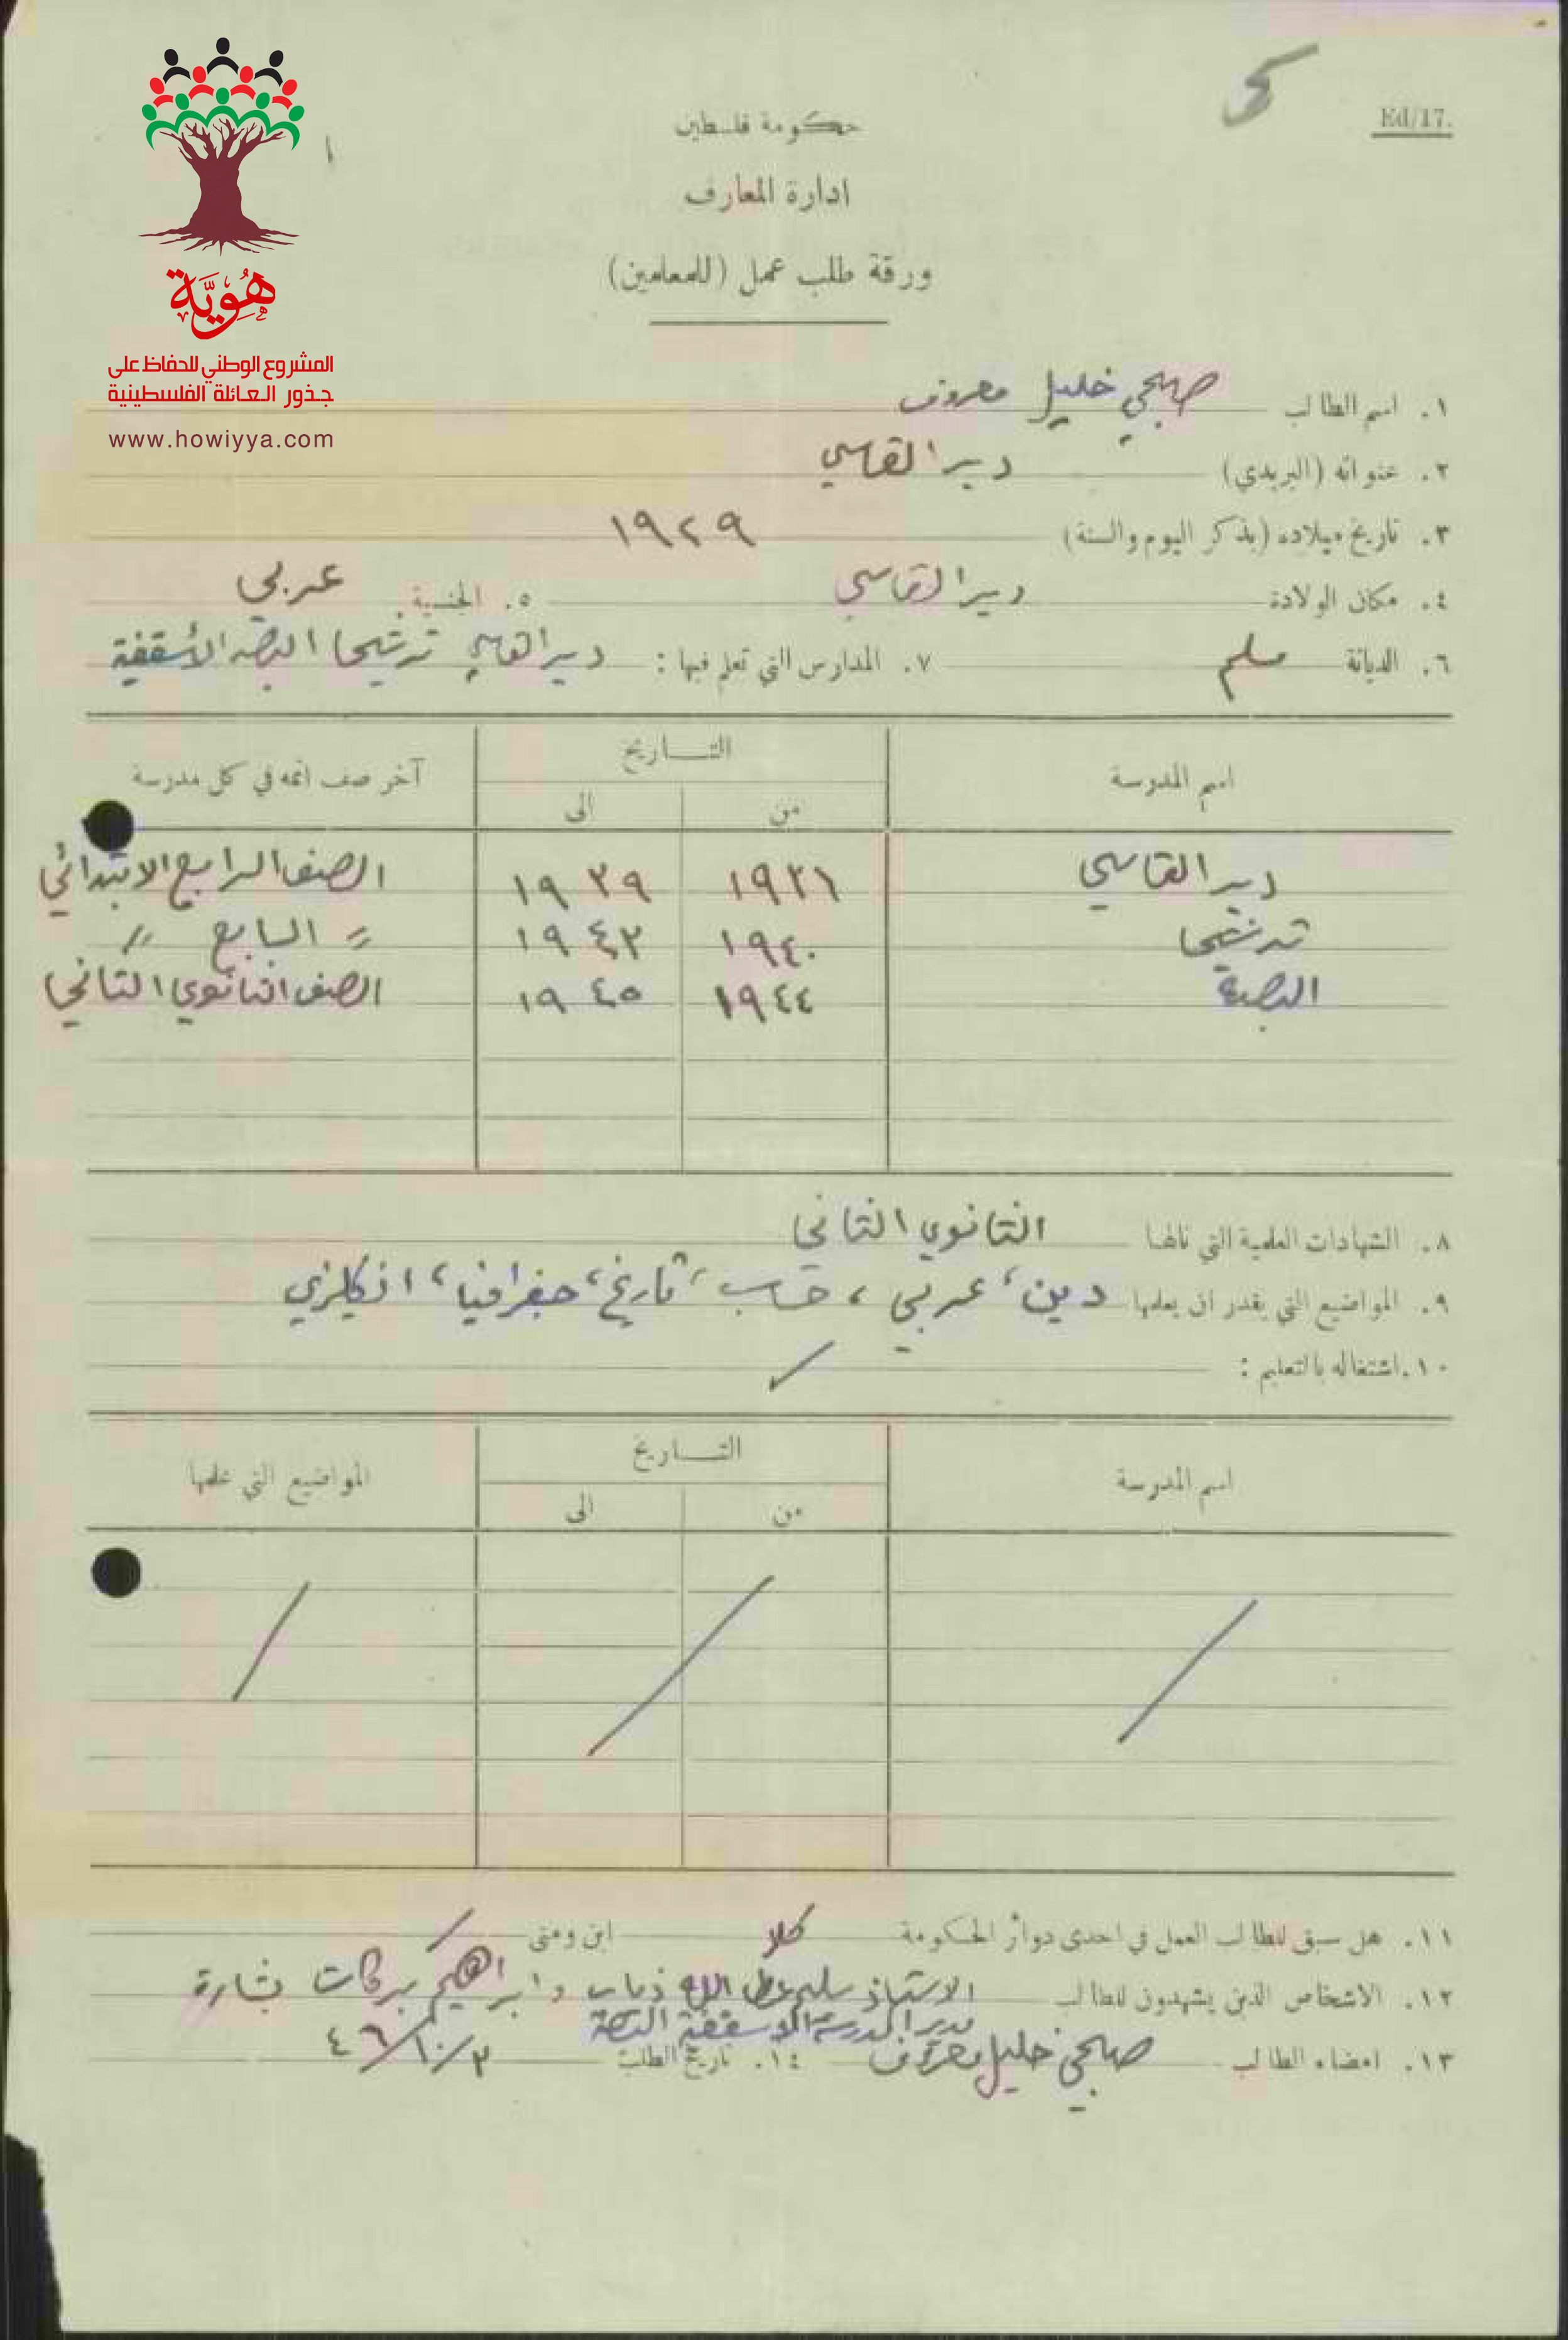 Ed/17.
حكومة فلسطين
ادارة المعارف
ورقة طلب عمل (للمعلمين)
هُوِيَّة
المشروع الوطني للحفاظ على
جذور العائلة الفلسطينية
www.howiyya.com
١. اسم الطالب صبحي خليل معروف
٢. عنوانه (البريدي) دير القاسي
٣. تاريخ ميلاده (بذكر اليوم والسنة) ١٩٢٩
٤. مكان الولادة دير القاسي ٥. الجنسية عربي
٦. الديانة مسلم ٧. المدارس التي تعلم فيها : دير القاسي ترشيحا البصه الأسقفية
اسم المدرسة التاريخ آخر صف اتمه في كل مدرسة
من الى
دير القاسي ١٩٣٦ ١٩٣٩ الصف الرابع الابتدائي
ترشيحا ١٩٤٠ ١٩٤٣〃 السابع 〃
البصة ١٩٤٤ ١٩٤٥ الصف الثانوي الثاني
٨. الشهادات العلمية التي نالها الثانوي الثاني
٩. المواضيع التي يقدر ان يعلمها دين، عربي، حساب، تاريخ، جغرافيا، انكليزي
١٠. اشتغاله بالتعليم :
اسم المدرسة التاريخ المواضيع التي علمها
من الى
١١. هل سبق للطالب العمل في احدى دوائر الحكومة كلا اين ومتى
١٢. الاشخاص الذين يشهدون للطالب الاستاذ سليم عطا الله ذياب وابراهيم بركات بشارة
مدير المدرسة الاسقفية البصة
١٣. امضاء الطالب صبحي خليل معروف ١٤. تاريخ الطلب ٣/١٠/٤٦